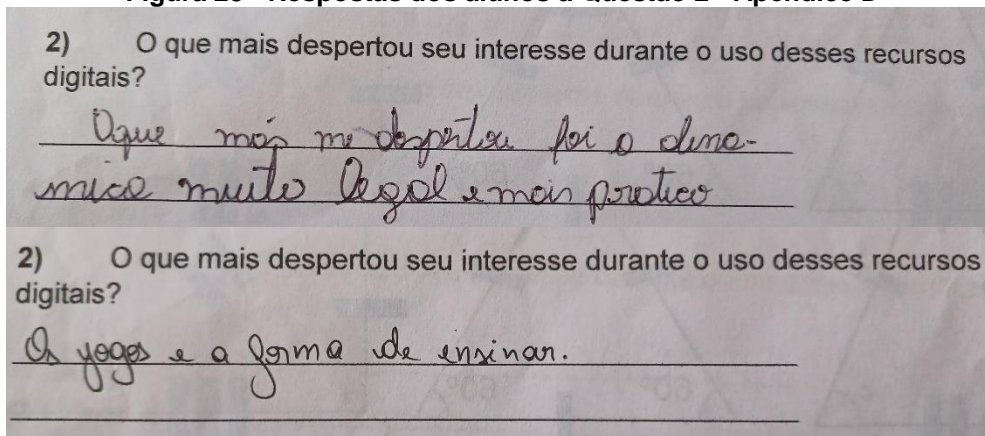 2) O que mais despertou seu interesse durante o uso desses recursos
digitais?
Oque mais me despertou foi a dina-
mica muito legal e mais pratico
2) O que mais despertou seu interesse durante o uso desses recursos
digitais?
Os yogos e a forma de ensinar.